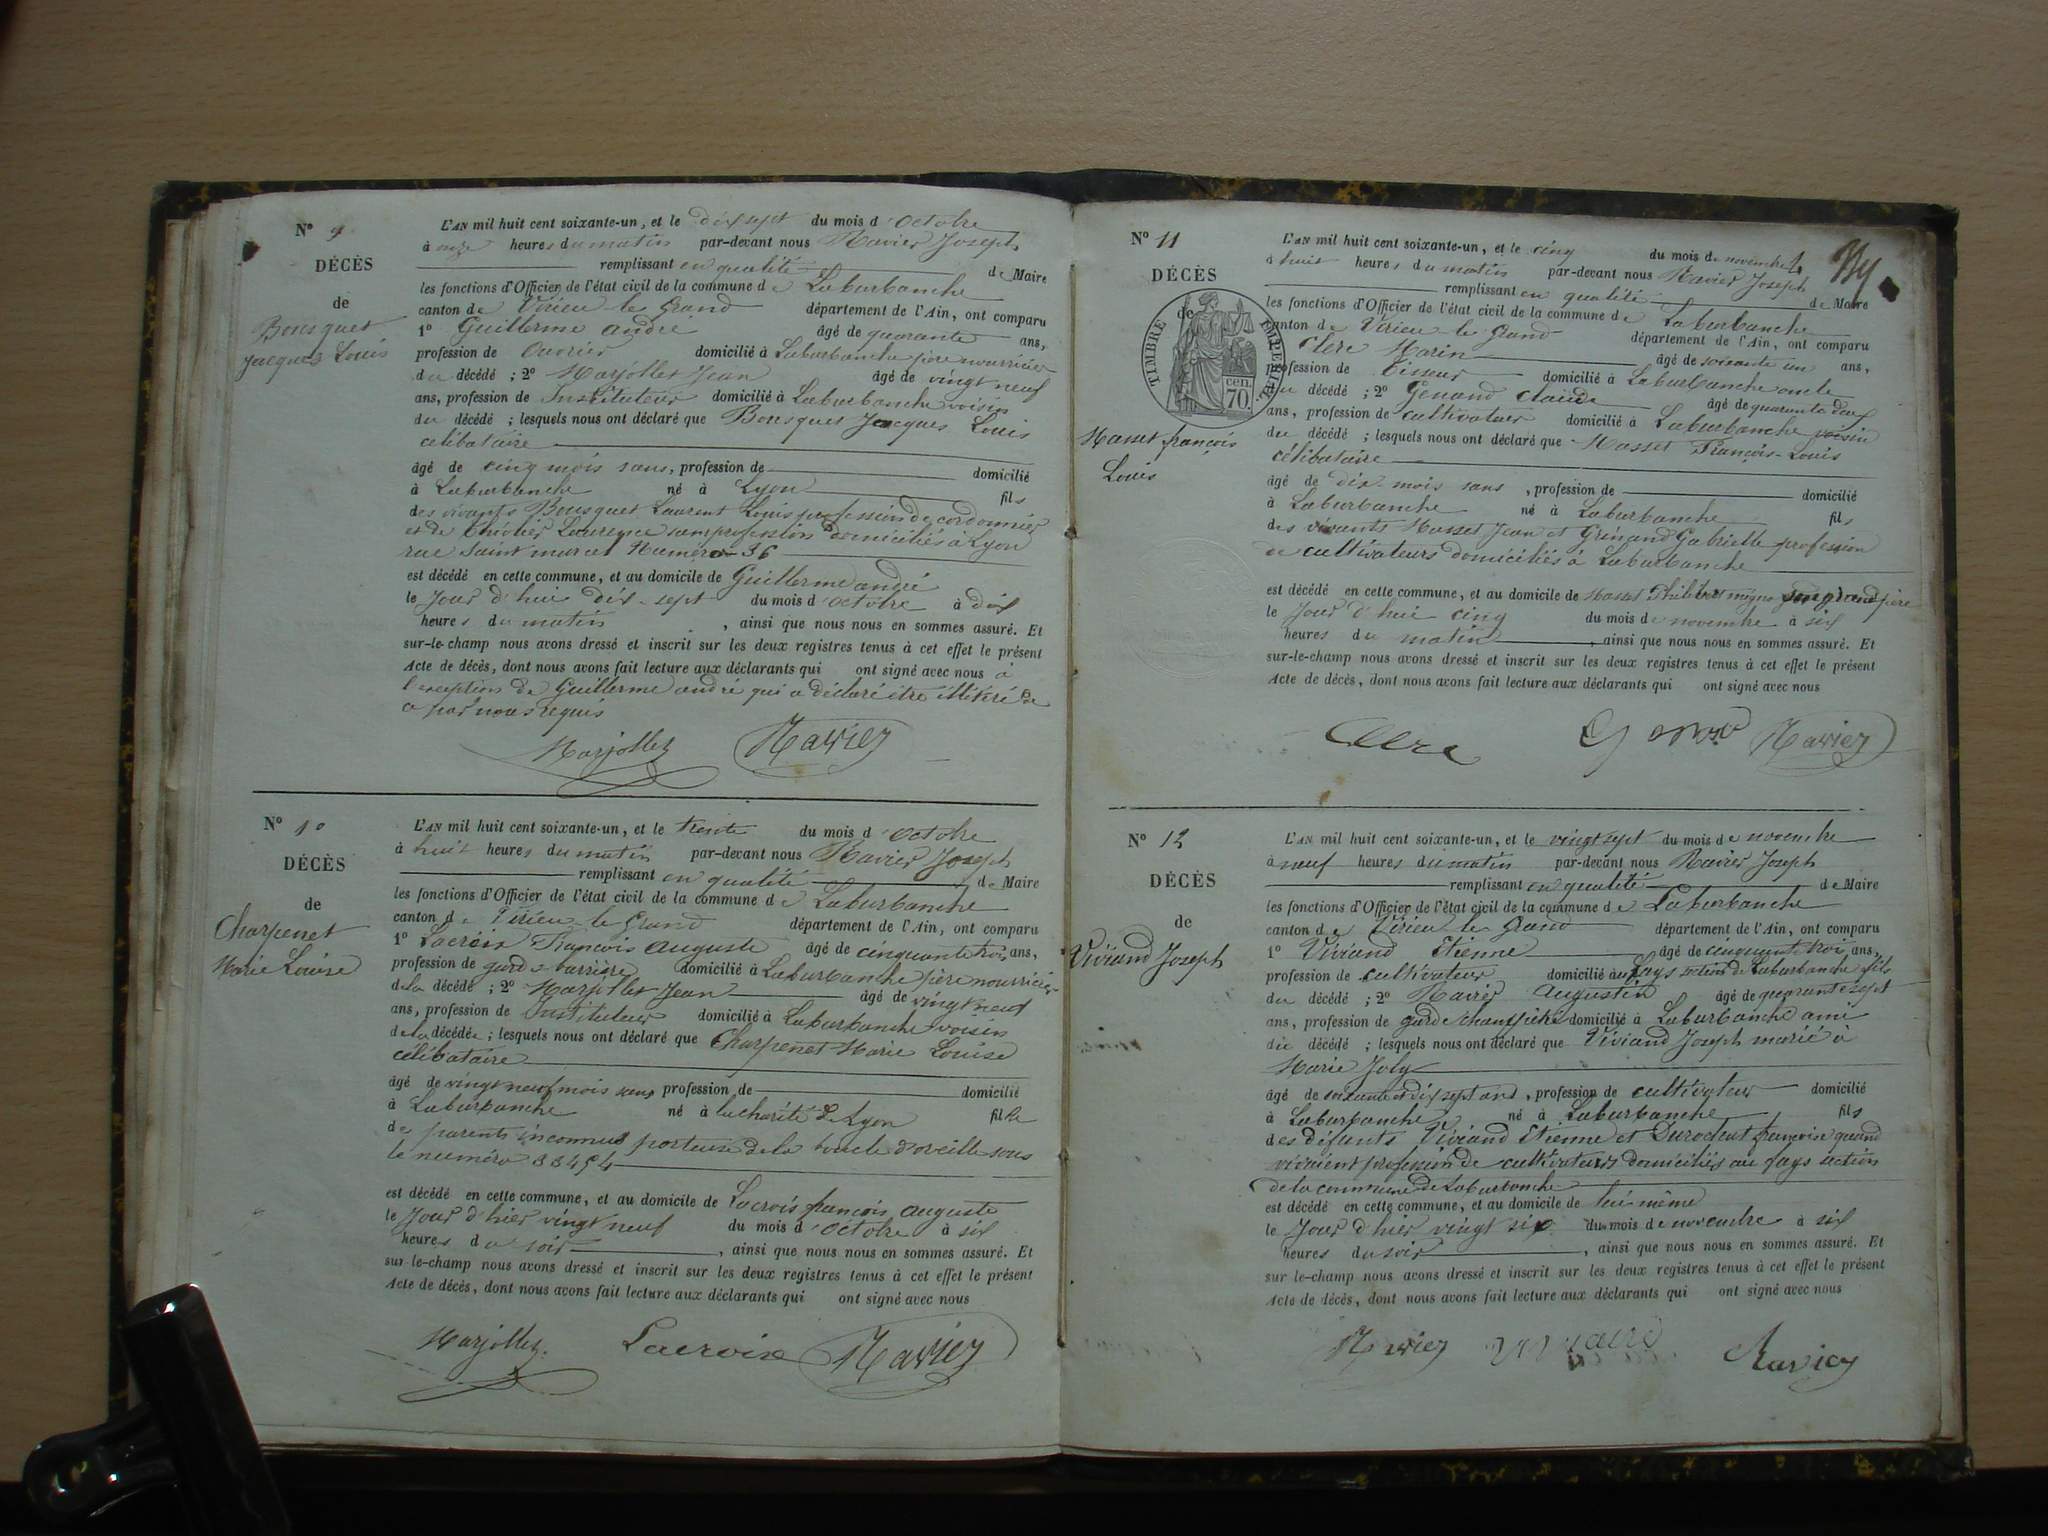 N° 9
DÉCÈS
de
Bousquet
Jacques Louis
L'AN mil huit cent soixante-un, et le dix sept du mois d'Octobre
à onze heures du matin par-devant nous Ravier Joseph
remplissant en qualité de Maire
les fonctions d'Officier de l'état civil de la commune de Laburbanche
canton de Virieu le Grand département de l'Ain, ont comparu
1° Guillerme andré âgé de quarante ans,
profession de Ouvrier domicilié à Laburbanche père nourricier
du décédé ; 2° Marjollet Jean âgé de vingt neuf
ans, profession de Instituteur domicilié à Laburbanche voisin
du décédé ; lesquels nous ont déclaré que Bousquet Jacques Louis
célibataire
âgé de cinq mois sans, profession de domicilié
à Laburbanche né à Lyon fils
des vivants Bousquet Laurent Louis profession de cordonnier
et de Laurence sans profession domiciliés à Lyon
rue saint marcel Numéro 36
est décédé en cette commune, et au domicile de Guillerme andré
le Jour d'hui dix-sept du mois d'octobre à dix
heures du matin, ainsi que nous nous en sommes assuré. Et
sur-le-champ nous avons dressé et inscrit sur les deux registres tenus à cet effet le présent
Acte de décès, dont nous avons fait lecture aux déclarants qui ont signé avec nous à
l'exception de Guillerme andré qui a déclaré être illitéré de
ce par nous requis
Marjollet Ravier
N° 10
DÉCÈS
de
Charpenet
Marie Louise
L'AN mil huit cent soixante-un, et le trente du mois d'Octobre
à huit heures du matin par-devant nous Ravier Joseph
remplissant en qualité de Maire
les fonctions d'Officier de l'état civil de la commune de Laburbanche
canton de Virieu le Grand département de l'Ain, ont comparu
1° Lacroix François Auguste âgé de cinquante trois ans,
profession de garde barrière domicilié à Laburbanche père nourricier
de la décédé ; 2° Marjollet Jean âgé de vingt neuf
ans, profession de Instituteur domicilié à Laburbanche voisin
de la décédée ; lesquels nous ont déclaré que Charpenet Marie Louise
célibataire
âgé de vingt neuf mois sans profession de domicilié
à Laburbanche né à la charité de Lyon fille
de parents inconnus porteuse de la boucle d'oreille sous
le numéro 33454
est décédé en cette commune, et au domicile de Lacroix françois auguste
le Jour d'hier vingt neuf du mois d'octobre à six
heures du soir, ainsi que nous nous en sommes assuré. Et
sur le-champ nous avons dressé et inscrit sur les deux registres tenus à cet effet le présent
Acte de décès, dont nous avons fait lecture aux déclarants qui ont signé avec nous
Marjollet Lacroix Ravier
N° 11
DÉCÈS
de
TIMBRE IMPÉRIAL
70. cen.
Masset françois
Louis
L'AN mil huit cent soixante-un, et le cinq du mois de novembre
à huit heures du matin par-devant nous Ravier Joseph
remplissant en qualité de Maire
les fonctions d'Officier de l'état civil de la commune de Laburbanche
canton de Virieu le Grand département de l'Ain, ont comparu
Clerc Marin âgé de soixante un ans,
profession de Tisseur domicilié à Laburbanche oncle
du décédé ; 2° Genand Claude âgé de quarante deux
ans, profession de cultivateur domicilié à Laburbanche voisin
du décédé ; lesquels nous ont déclaré que Masset François-Louis
célibataire
âgé de dix-mois sans, profession de domicilié
à Laburbanche né à Laburbanche fils
des vivants Masset Jean et Grinand Gabrielle profession
de cultivateurs domiciliés à Laburbanche
est décédé en cette commune, et au domicile de Masset Philibert son grand père
le Jour d'hui cinq du mois de novembre à six
heures du matin, ainsi que nous nous en sommes assuré. Et
sur-le-champ nous avons dressé et inscrit sur les deux registres tenus à cet effet le présent
Acte de décès, dont nous avons fait lecture aux déclarants qui ont signé avec nous
Clerc Ravier
N° 12
DÉCÈS
de
Viviand Joseph
L'AN mil huit cent soixante-un, et le vingt sept du mois de novembre
à neuf heures du matin par-devant nous Ravier Joseph
remplissant en qualité de Maire
les fonctions d'Officier de l'état civil de la commune de Laburbanche
canton de Virieu le Grand département de l'Ain, ont comparu
1° Viviand Etienne âgé de cinquante trois ans,
profession de cultivateur domicilié au fays section de Laburbanche fils
du décédé ; 2° Ravier Augustin âgé de quarante sept
ans, profession de garde champêtre domicilié à Laburbanche ami
du décédé ; lesquels nous ont déclaré que Viviand Joseph marié à
Marie Joly
âgé de soixante et dix sept ans, profession de cultivateur domicilié
à Laburbanche né à Laburbanche fils
des défunts Viviand Etienne et françoise quand
vivaient profession de cultivateurs domiciliés au fays section
de la commune de Laburbanche
est décédé en cette commune, et au domicile de lui même
le Jour d'hier vingt six du mois de novembre à six
heures du soir, ainsi que nous nous en sommes assuré. Et
sur le-champ nous avons dressé et inscrit sur les deux registres tenus à cet effet le présent
Acte de décès, dont nous avons fait lecture aux déclarants qui ont signé avec nous
Ravier Ravier